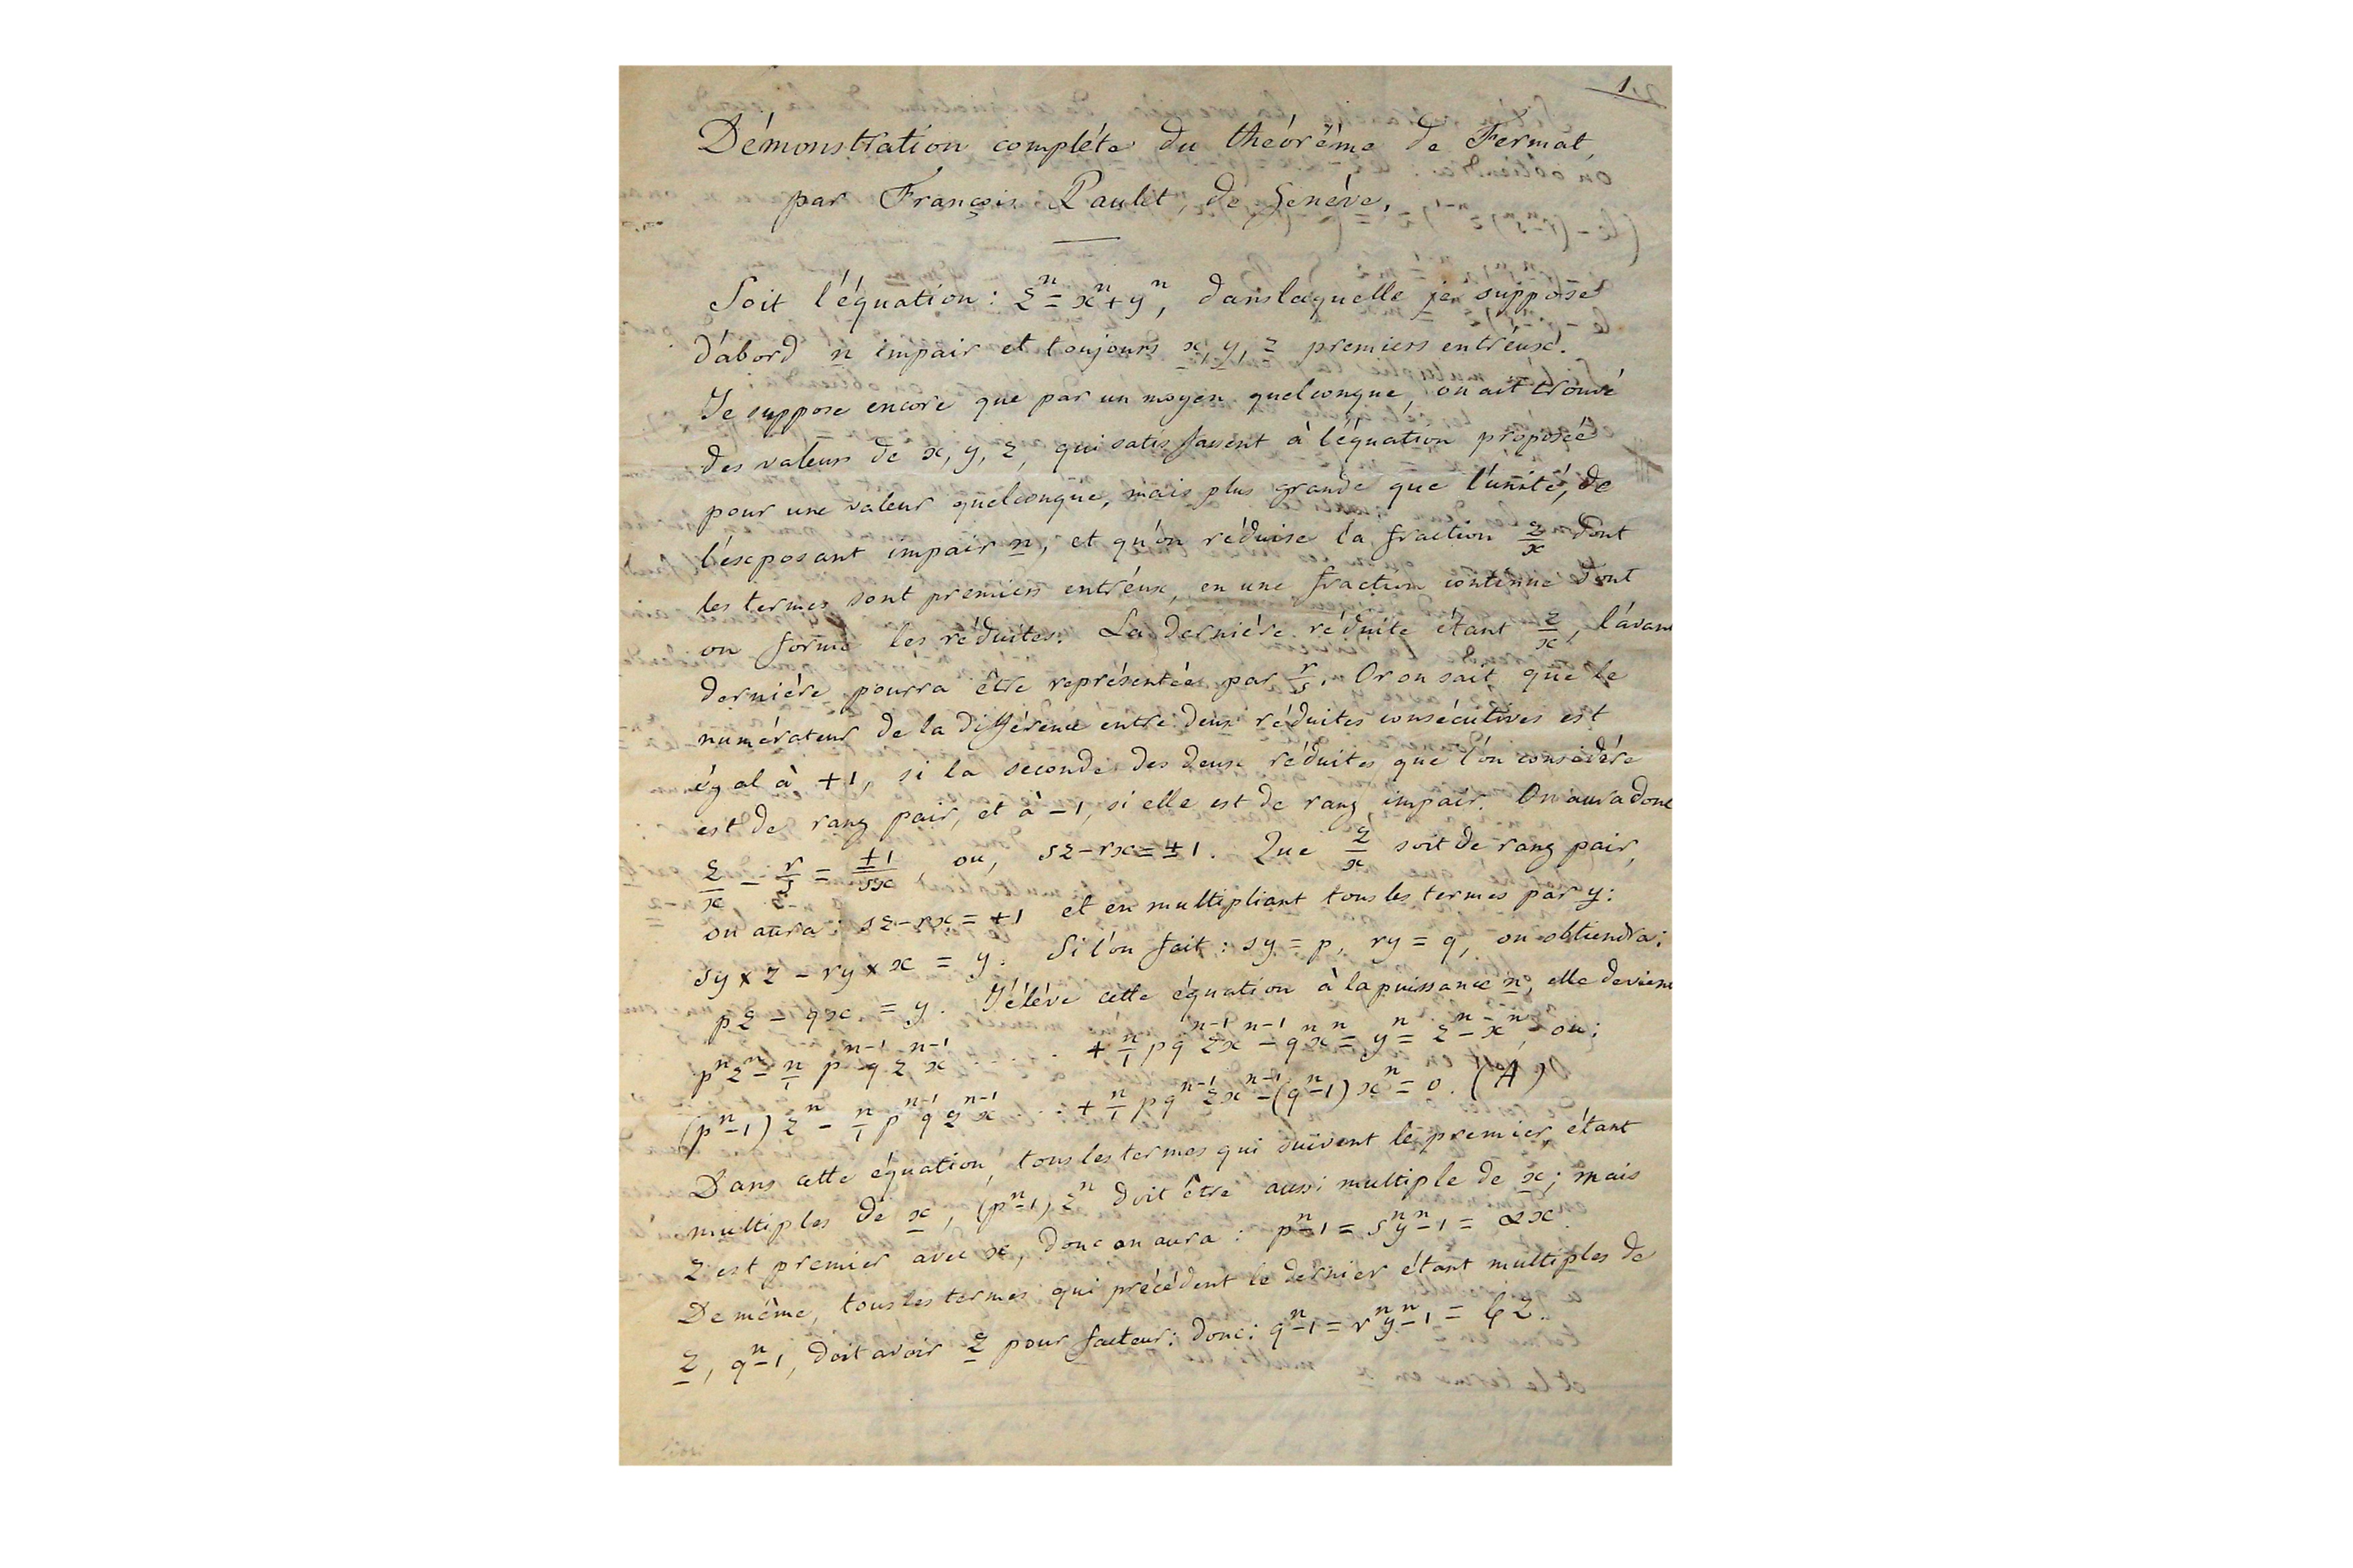 1
Démonstration compléte du theórême de Fermat,
par François Paulet, de Genéve.
Soit l'équation : z^n = x^n + y^n, dans laquelle je suppose
d'abord n impair et toujours x, y, z premiers entr'eux.
Je suppose encore que par un moyen quelconque, on ait trouvé
des valeurs de x, y, z, qui satisfassent à l'équation proposée
pour une valeur quelconque, mais plus grande que l'unité, de
l'exposant impair n, et qu'on réduise la fraction z/x dont
les termes sont premiers entr'eux, en une fraction continue dont
on forme les réduites. La derniére réduite étant z/x, l'avant
derniére pourra être représentée par r/s. Or on sait que le
numérateur de la différence entre deux réduites consécutives est
égal à +1, si la seconde des deux réduites que l'on considére
est de rang pair, et à −1, si elle est de rang impair. On aura donc
z/x − r/s = ±1/sx ou, sz − rx = ±1. Que z/x soit de rang pair,
on aura : sz − rx = +1 et en multipliant tous les termes par y :
sy × z − ry × x = y. Si l'on fait : sy = p, ry = q, on obtiendra :
pz − qx = y. J'éléve cette équation à la puissance n, elle devient
p^n z^n − n/1 p^{n−1} q z^{n−1} x . . . . . + n/1 p q^{n−1} z x^{n−1} − q^n x^n = y^n = z^n − x^n, ou :
(p^n − 1) z^n − n/1 p^{n−1} q z^{n−1} x . . . + n/1 p q^{n−1} z x^{n−1} − (q^n − 1) x^n = 0. (A)
Dans cette équation, tous les termes qui suivent le premier, étant
multiples de x, (p^n − 1) z^n doit être aussi multiple de x ; mais
z est premier avec x, donc on aura : p^n − 1 = s^n y^n − 1 = ax.
De même, tous les termes qui précédent le dernier étant multiples de
z, q^n − 1, doit avoir z pour facteur : donc : q^n − 1 = r^n y^n − 1 = bz.